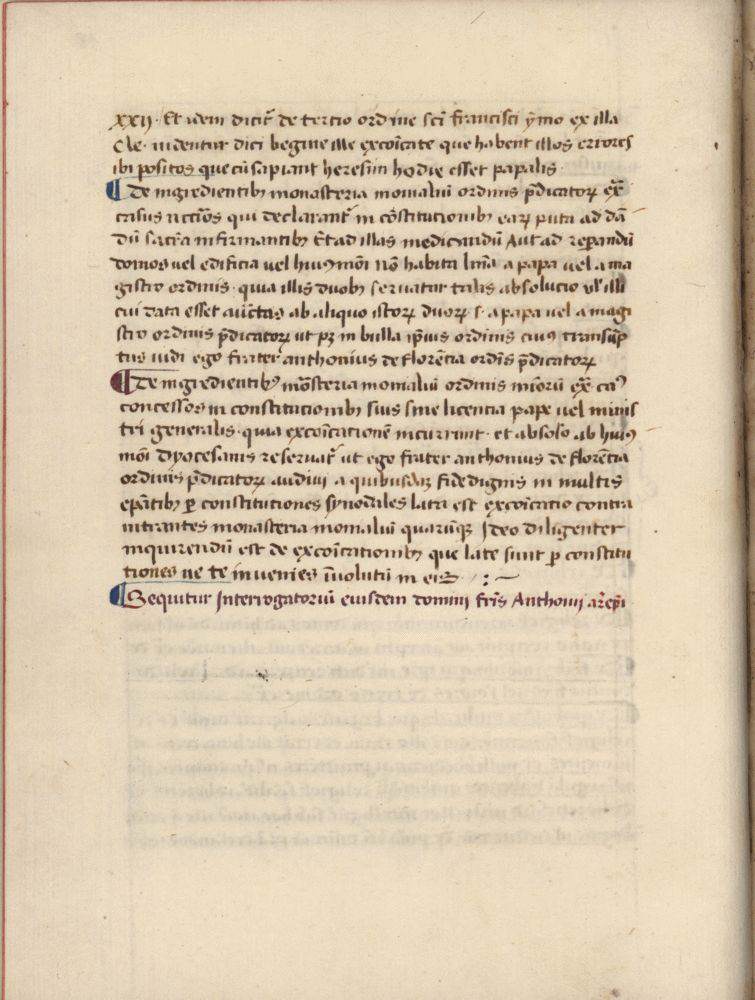 xxij. Et idem dicit̄ de tercio ordine sc̄i francisci ymo ex illa
Cle. uidentur dici begine ille excōicate que habent illos errores
ibi positos que cū sapiant heresim hodie esset papalis
¶ De ingredientibꝫ monasteria monialiū ordinis p̄dicatoꝝ ex̄
casus n̄cc̄iōs qui declarant̄ in cōstitucionibꝫ eaꝝ puta ad dā
dū sacr̄a infirmantibꝫ Et ad illas medicandū Aut ad reparandū
domos uel edificia uel huiꝰmōi nō habita lnīa a papa uel a ma
gistro ordinis. quia illis duobꝫ seruatur talis absolucio ul̓ illi
cui data esset auctās ab aliquo istoꝝ duoꝝ .s. a papa uel a magi
stro ordinis p̄dicatoꝝ ut pꝫ in bulla ip̄ius ordinis cuiꝰ transūp
tus uidi ego frater anthonius de florēcia ordīs p̄dicatoꝝ
¶ De ingredientibꝫ mōsteria monialiū ordinis mīorū ex̄ caꝰ
concessos in constitucionibꝫ suis sine licencia pape uel minis
tri generalis. quia excōicationē incurrunt. et absol̓o ab huiꝰ
mōi dyocesanis reseruat̄ ut ego frater anthonius de florēcia
ordinis p̄dicatoꝝ audiui a quibusdaꝫ fidedignis in multis
ep̄atibꝫ ꝑ constitutiones synodales lata est excōicatio contra
intrantes monasteria monialiū quarūqꝫ Ideo diligenter
inquirendū est de excōicationibꝫ que late sunt ꝑ constitu
tiones ne te inuenies īuolutū in eis
¶ Sequitur Interrogatoriū eiusdem domini frīs Anthonij ar̄ep̄i